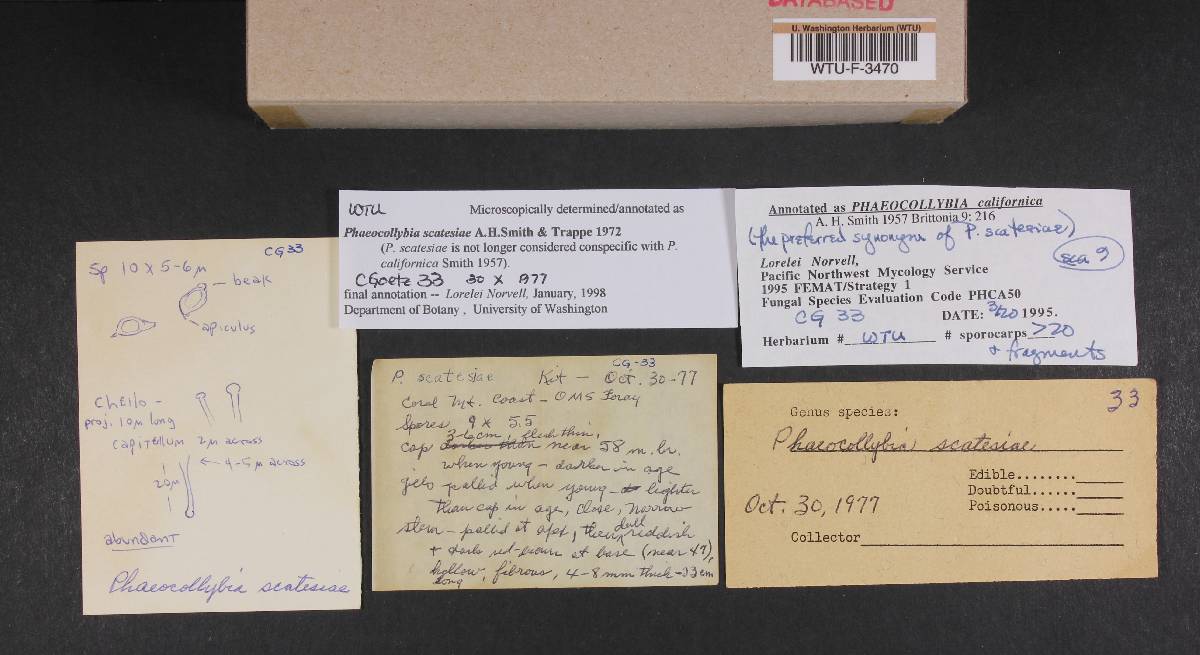 DATABASED
U. Washington Herbarium (WTU)
WTU-F-3470
WTU Microscopically determined/annotated as
Phaeocollybia scatesiae A.H.Smith & Trappe 1972
(P. scatesiae is not longer considered conspecific with P.
californica Smith 1957).
CGoetz 33 30 X 1977
final annotation -- Lorelei Norvell, January, 1998
Department of Botany , University of Washington
Annotated as PHAEOCOLLYBIA californica
A. H. Smith 1957 Brittonia 9: 216
(the preferred synonym of P. scatesiae)
sca 9
Lorelei Norvell,
Pacific Northwest Mycology Service
1995 FEMAT/Strategy 1
Fungal Species Evaluation Code PHCA50
CG 33 DATE: 3/20 1995.
Herbarium # WTU # sporocarps >20
+ fragments
CG 33
Sp 10 x 5-6µ
beak
apiculus
Cheilo -
proj. 10µ long
capitellum 2µ across
4-5µ across
20µ
abundant
Phaeocollybia scatesiae
CG-33
P. scatesiae Kit - Oct. 30-77
Coral Mt. Coast - OMS Foray
Spores 9 x 5.5
3-6cm, flesh thin,
cap darker than near 58 m. br.
when young - darker in age
gills pallid when young - lighter
than cap in age, close, narrow
stem - pallid at apex, then dull reddish
+ dark red-brown at base (near 47),
hollow, fibrous, 4-8mm thick - 23cm
long
33
Genus species:
Phaeocollybia scatesiae
Edible........
Doubtful......
Poisonous.....
Oct. 30, 1977
Collector